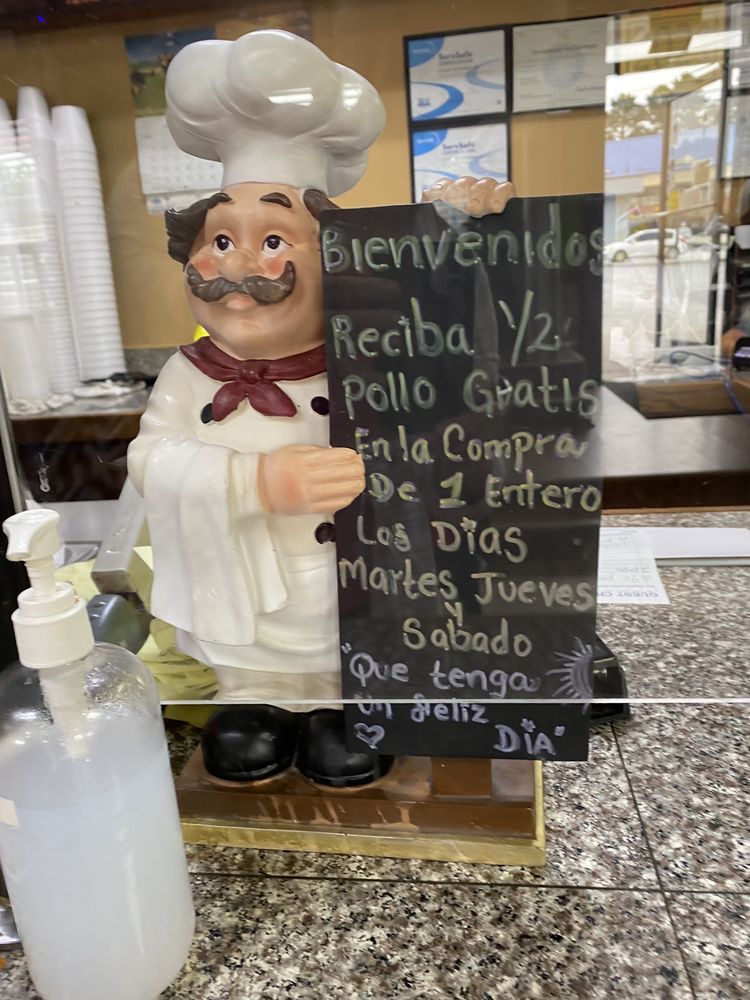 ServSafe
ServSafe
Bienvenidos
Reciba 1/2
pollo Gratis
En la Compra
De 1 Entero
Los Dias
Martes Jueves
y
Sabado
"Que tenga
un feliz
DiA"